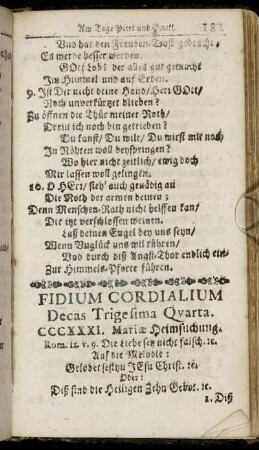 Am Tage Petri und Pauli. 181
Und hat den Freuden-Trost gebracht,
Es werde besser werden.
GOtt Lob! der alles gut gemacht
Im Himmel und auf Erden.
9. Ist Dir nicht deine Hand/ Herr GOtt/
Noch unverkürtzt blieben?
Zu öffnen die Thür meiner Noth/
Drein ich noch bin getrieben?
Du kanst/ Du wilt/ Du wirst mir noch
In Nöhten woll beyspringen?
Wo hier nicht zeitlich/ ewig doch
Mir lassen woll gelingen.
10. O HErr/ sieh' auch gnädig an
Die Noth der armen deinen;
Denn Menschen-Rath nicht helffen kan/
Die itzt verschlossen weinen.
Laß deinen Engel bey uns seyn/
Wenn Unglück uns will rühren/
Und durch diß Angst-Thor endlich ein-
Zur Himmels-Pforte führen.
FIDIUM CORDIALIUM
Decas Trigesima Qvarta.
CCCXXXI. Mariæ Heimsuchung.
Rom. 12. v. 9. Die Liebe sey nicht falsch. ꝛc.
Auf die Melodie:
Gelobet seystu JEsu Christ. ꝛc.
Oder:
Diß sind die Heiligen Zehn Gebot. ꝛc.
1. Diß